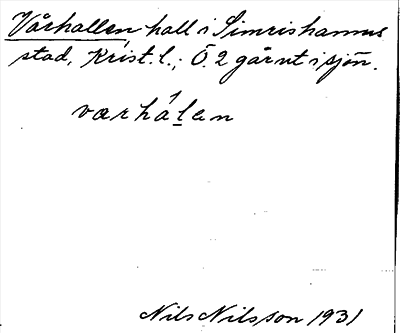 Vårhallen hall i Simrishamns
stad, Krist. l.; Ö. 2 går ut i sjön.
værhálan
Nils Nilsson 1931